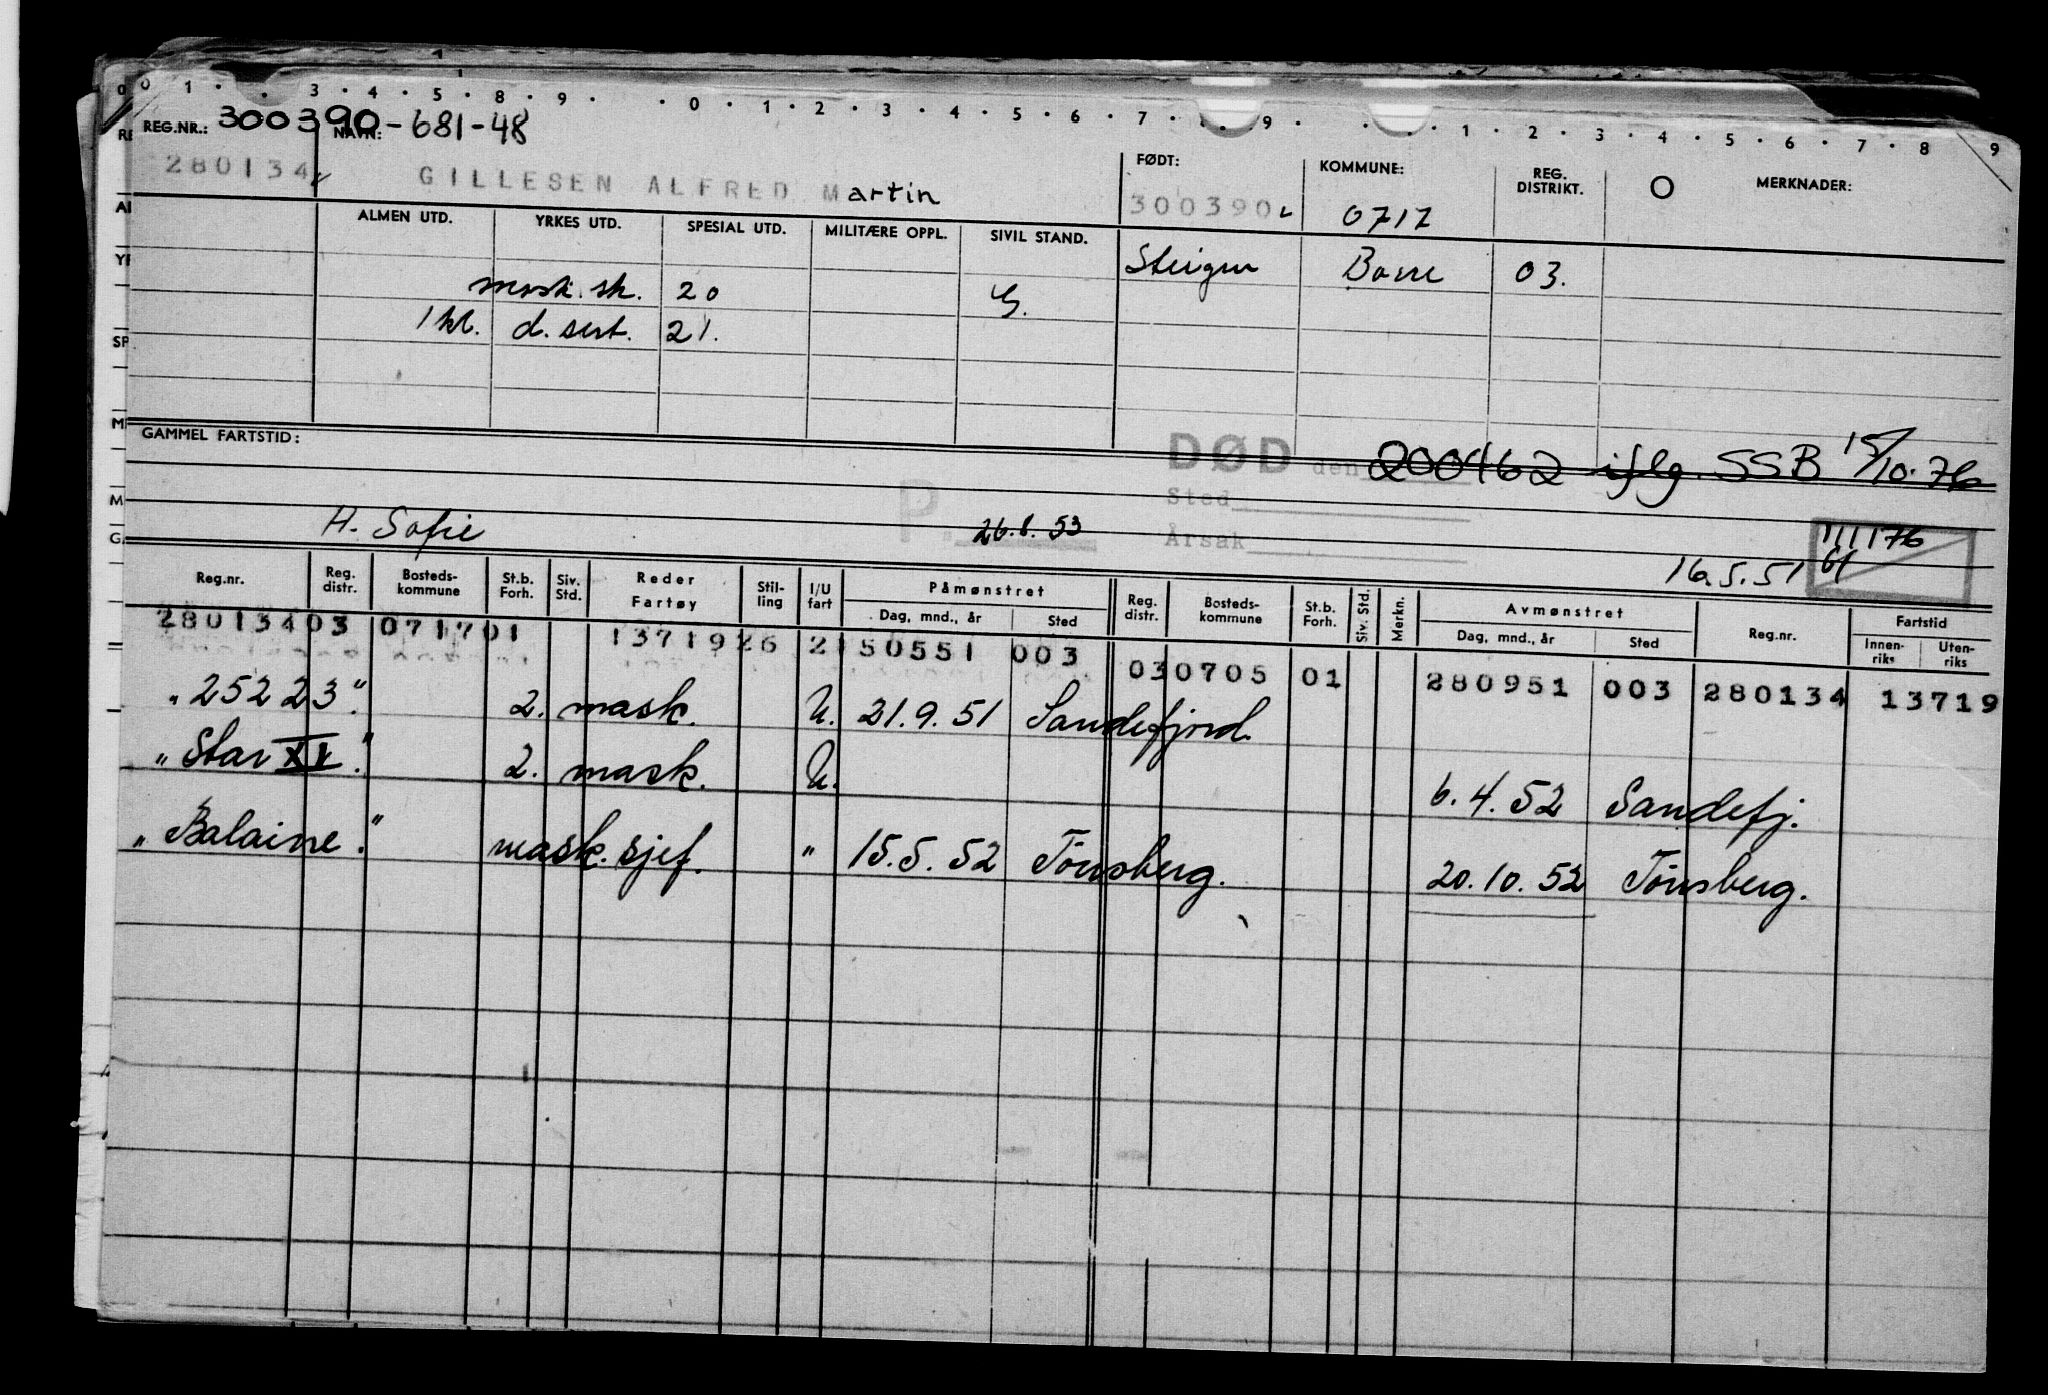 0 1 . . 3 . 4 . 5 . 8 . 9 . . 0 . 1 . 2 . 3 . 4 . 5 . 6 . 7 . . 9 . . . 1 . 2 . 3 . 4 . 5 . 6 . 7 . 8 9
REG.NR.: 300390-681-48 NAVN: FØDT: KOMMUNE: REG. DISTRIKT. O MERKNADER:
280134 GILLESEN ALFRED Martin 300390 0717
ALMEN UTD. YRKES UTD. SPESIAL UTD. MILITÆRE OPPL. SIVIL STAND. Steigen Borre 03.
mask. sk. 20 G.
1 kl. d. sert. 21.
GAMMEL FARTSTID: DØD den 200462 iflg. SSB 15/10.76
Sted
P. Årsak
H. Sofie 26.8.53 16.5.51 111176
Reg.nr. Reg. distr. Bosteds-kommune St.b. Forh. Siv. Std. Reder Fartøy Stil-ling I/U fart Påmønstret Reg. distr. Bosteds-kommune St.b. Forh. Siv. Std. Merkn. Avmønstret Reg.nr. Fartstid
Dag, mnd., år Sted Dag, mnd., år Sted Innen-riks Uten-riks
280134 03 0717 01 1371926 2 150551 003 03 0705 01 280951 003 280134 13719
"25223". 2. mask. U. 21.9.51 Sandefjord.
"Star XV." 2. mask. U. 6.4.52 Sandefj.
"Balaine." mask.sjef. " 15.5.52 Tønsberg. 20.10.52 Tønsberg.